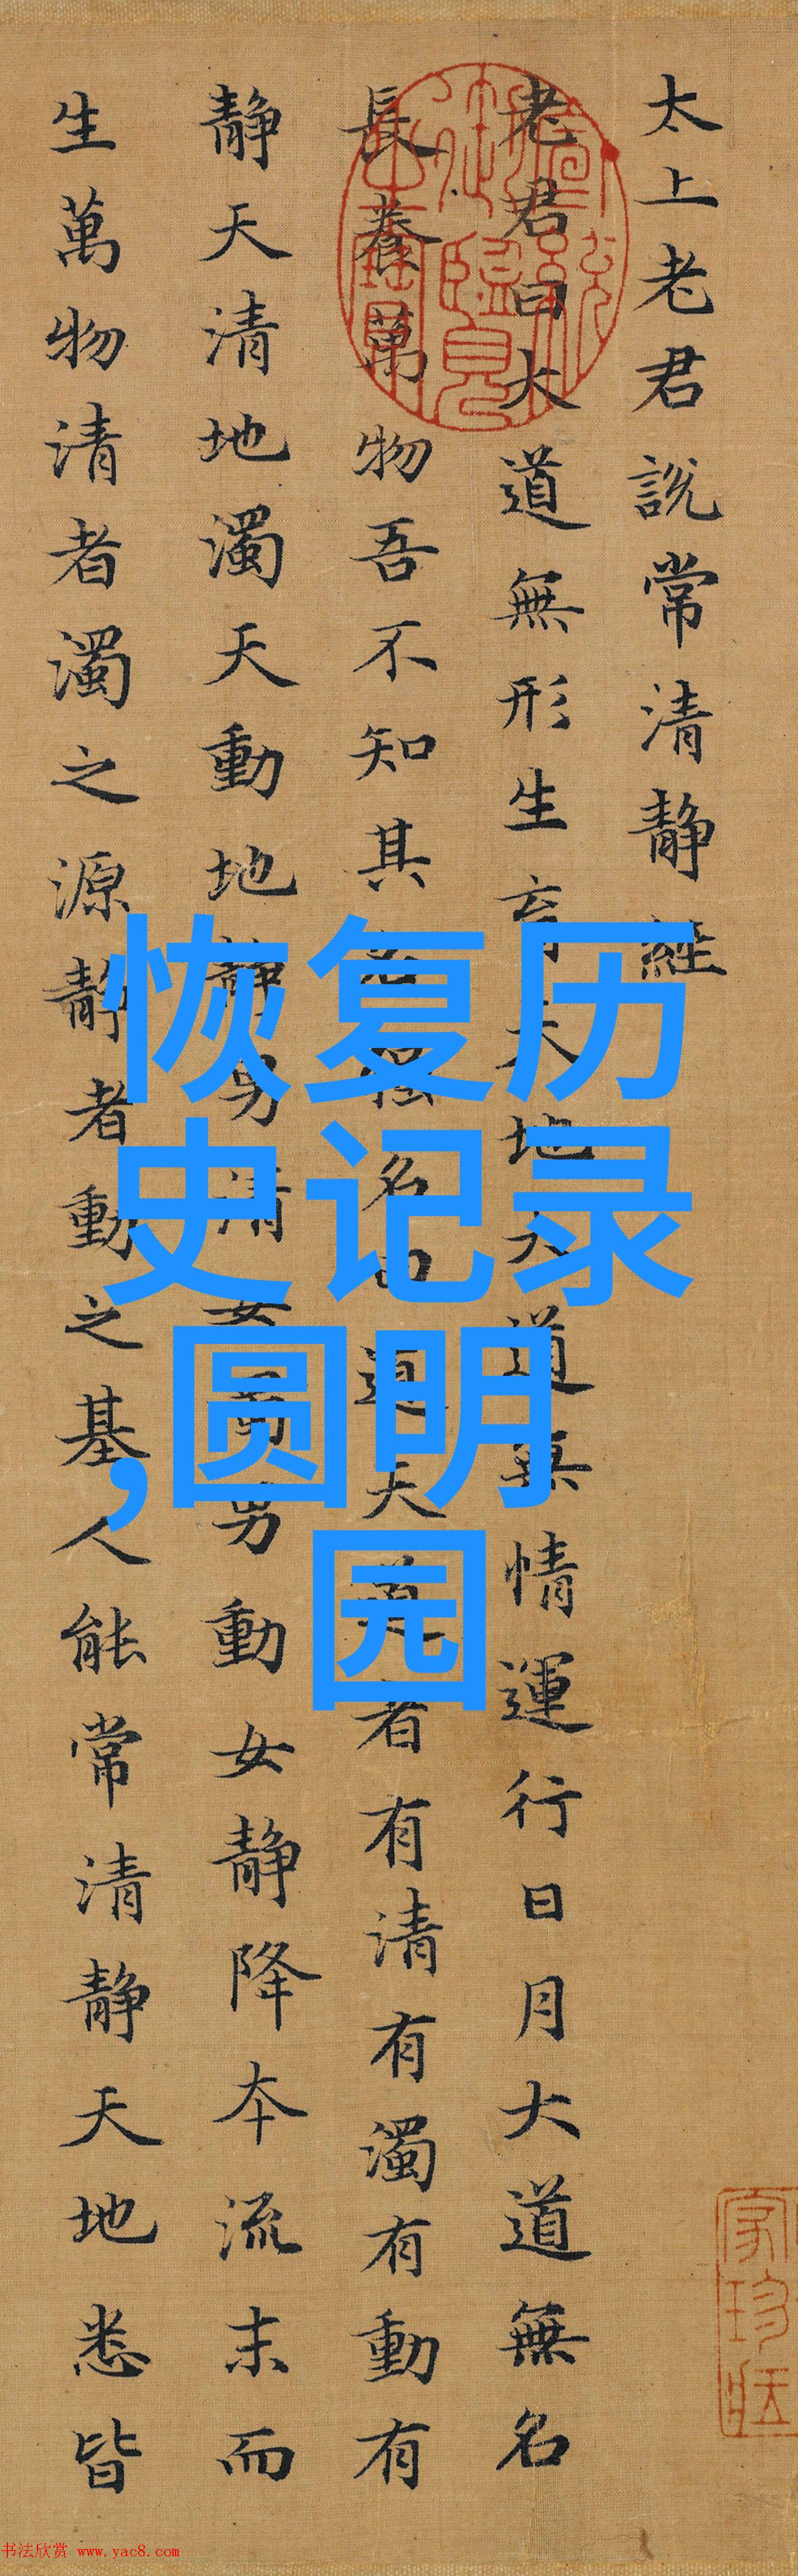 太上老君説常清静經
老君曰大道無形生育天地大道無情運行日月大道無名
長養萬物吾不知其名強名曰道夫道者有清有濁有動有
静天清地濁天動地静男清女濁男動女静降本流末而
生萬物清者濁之源静者動之基人能常清静天地悉皆
恢复历
史记录
,圆明
园
书法欣赏 www.yac8.com